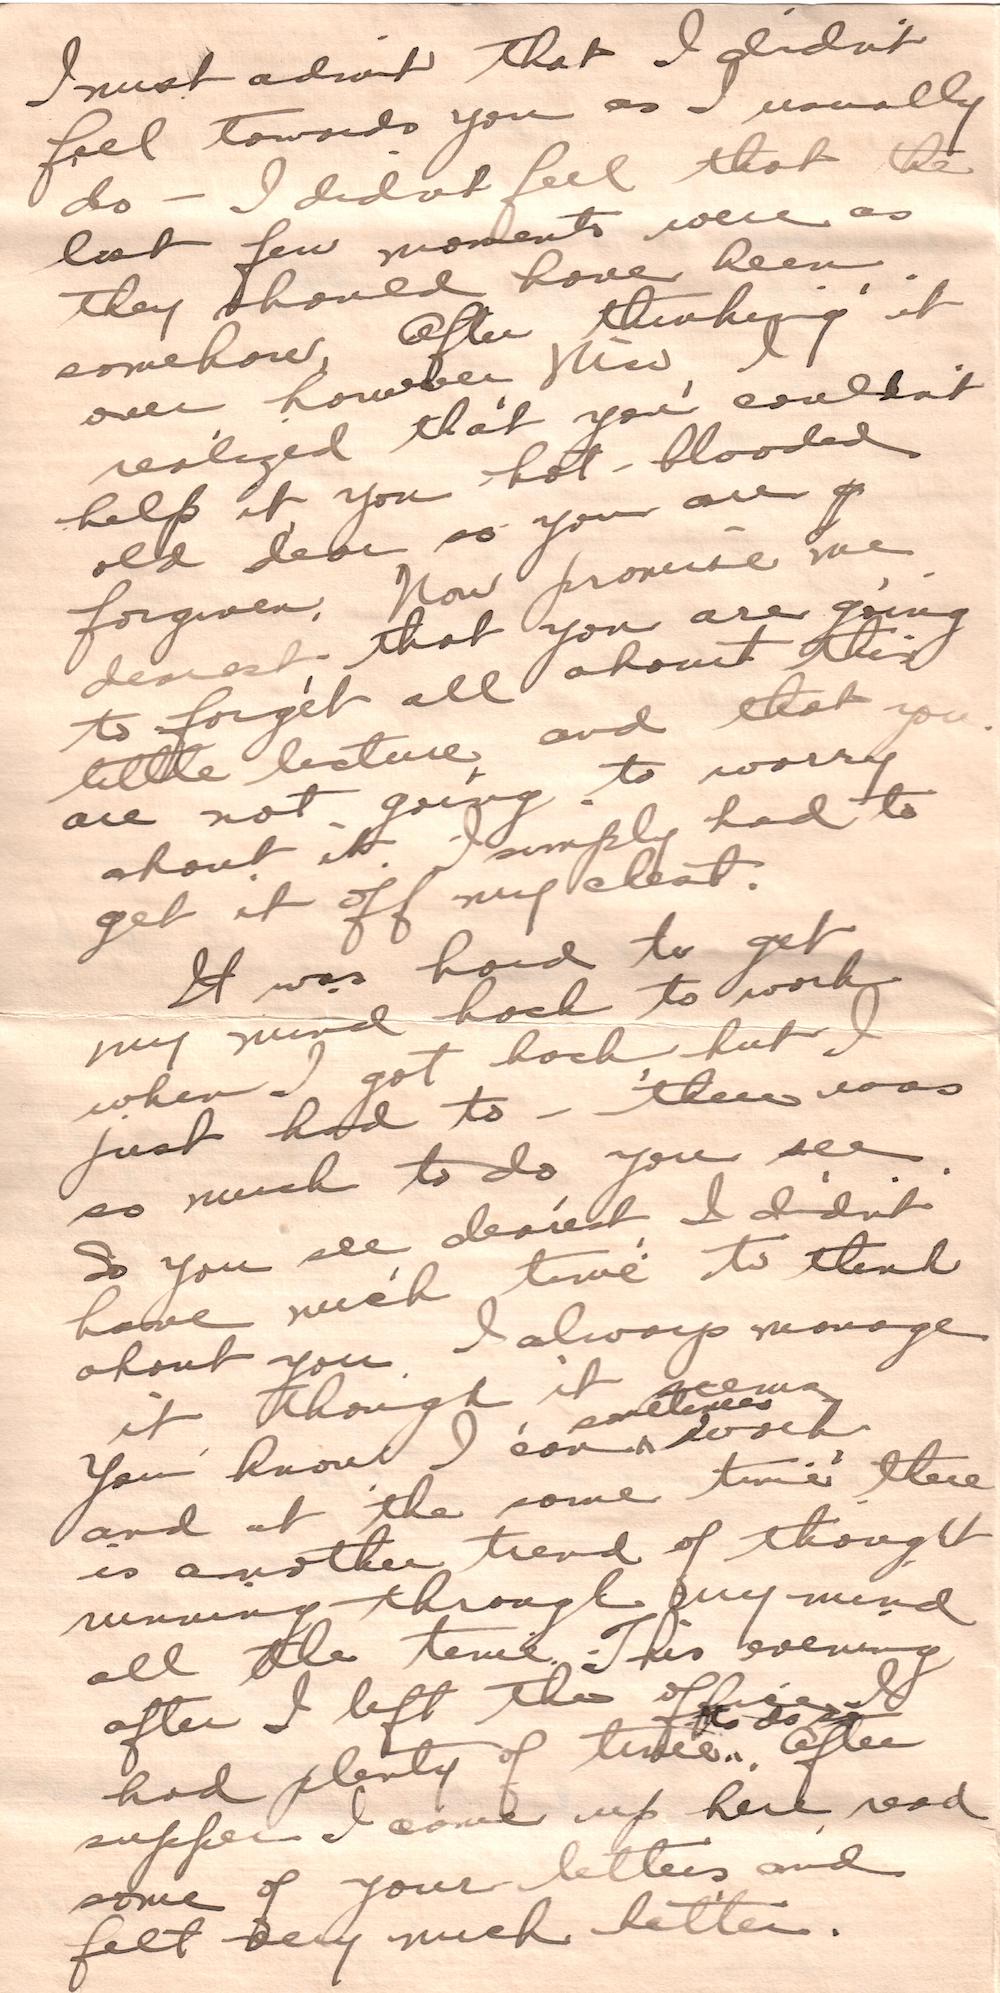 I must admit that I didn't
feel towards you as I usually
do - I didn't feel that the
last few moments were as
they should have been
somehow. After thinking it
over however I
realized that you couldn't
help it you hot-blooded
old dear so you are
forgiven. Now promise me
dearest, that you are going
to forget all about this
little lecture, and that you
are not going to worry
about it. I simply had to
get it off my chest.
It was hard to get
my mind back to work
when I got back but I
just had to - there was
so much to do you see.
So you see dearest I didn't
have much time to think
about you. I always manage
it though it seems
You know I can sometimes work
and at the same time there
is another trend of thought
running through my mind
all the time. This evening
after I left the office I
had plenty of time to do so. After
supper I came up here, read
some of your letters and
felt very much better.